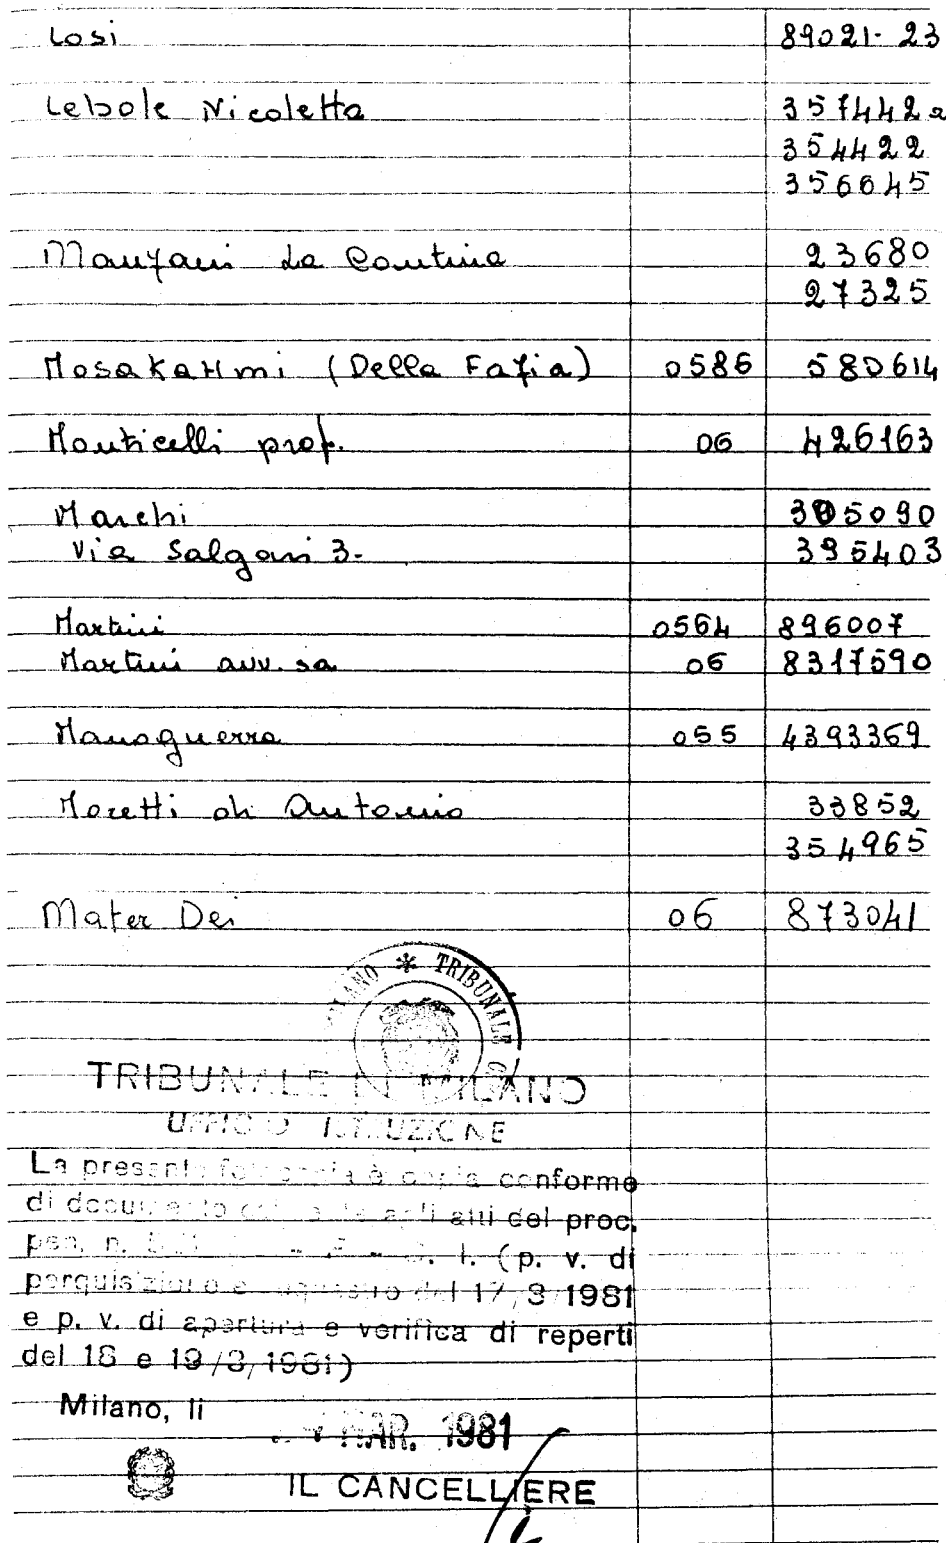 Losi 89021-23
Lebole Nicoletta 3574422
354422
356645
Manfani La Contina 23680
27325
(Della Fazia) 0586 580614
Monticelli prof. 06 426163
Marchi 5090
Via Salgari 3- 395403
Martini 0564 896007
Martini avv. sa 06 8317590
Manoguerra 055 4393369
Moretti Antonio 33852
354965
Mater Dei 06 873041
MILANO * TRIBUNALE
TRIBUNALE DI MILANO
UFFICIO ISTRUZIONE
La presente fotocopia è copia conforme
di documento agli atti del proc.
pen. n. G. I. (p. v. di
perquisizione e sequestro del 17/3/1981
e p. v. di apertura e verifica di reperti
del 18 e 19/3/1981)
Milano, li
MAR. 1981
IL CANCELLIERE